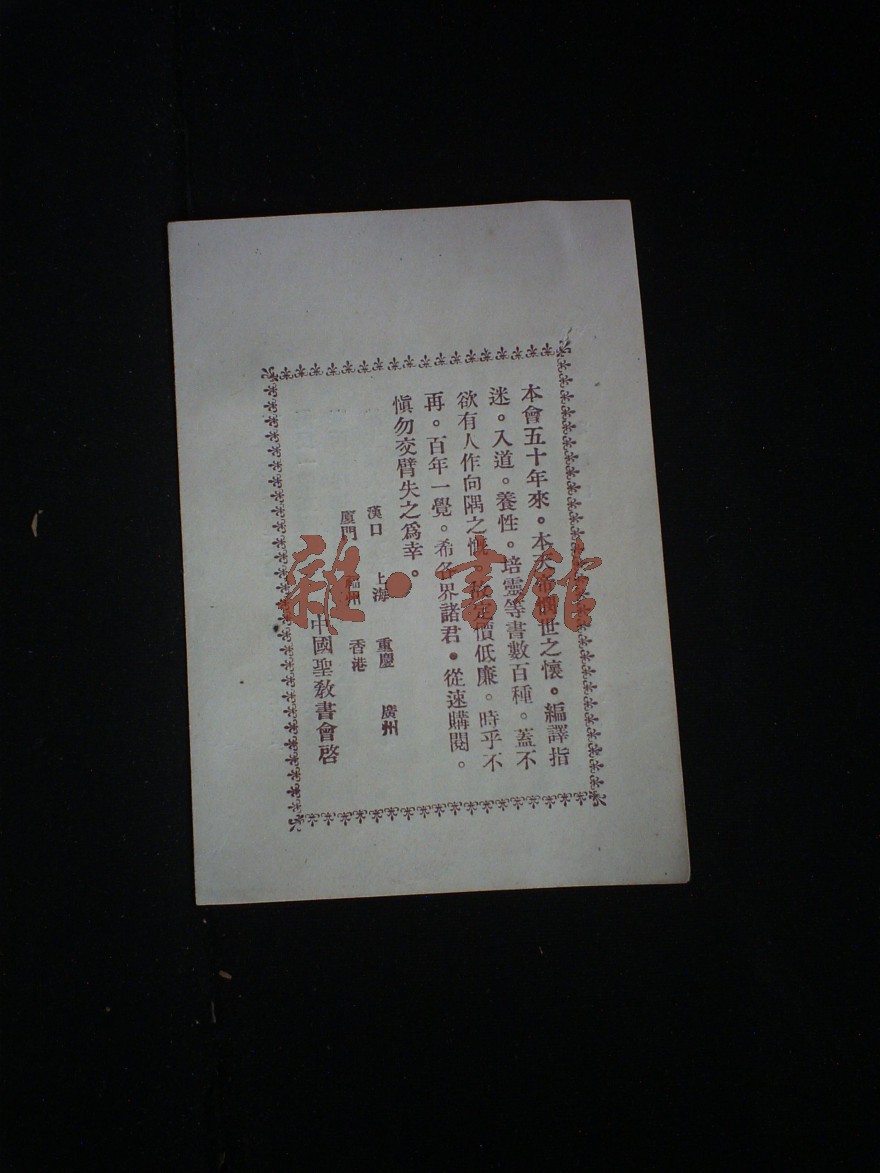 本會五十年來。本天帝憫世之懷。編譯指
迷。入道。養性。培靈等書數百種。蓋不
欲有人作向隅之慨。故定價低廉。時乎不
再。百年一覺。希各界諸君。從速購閱。
慎勿交臂失之爲幸。
漢口 上海 重慶 廣州
厦門 福州 香港
中國聖教書會啓
雜·書館